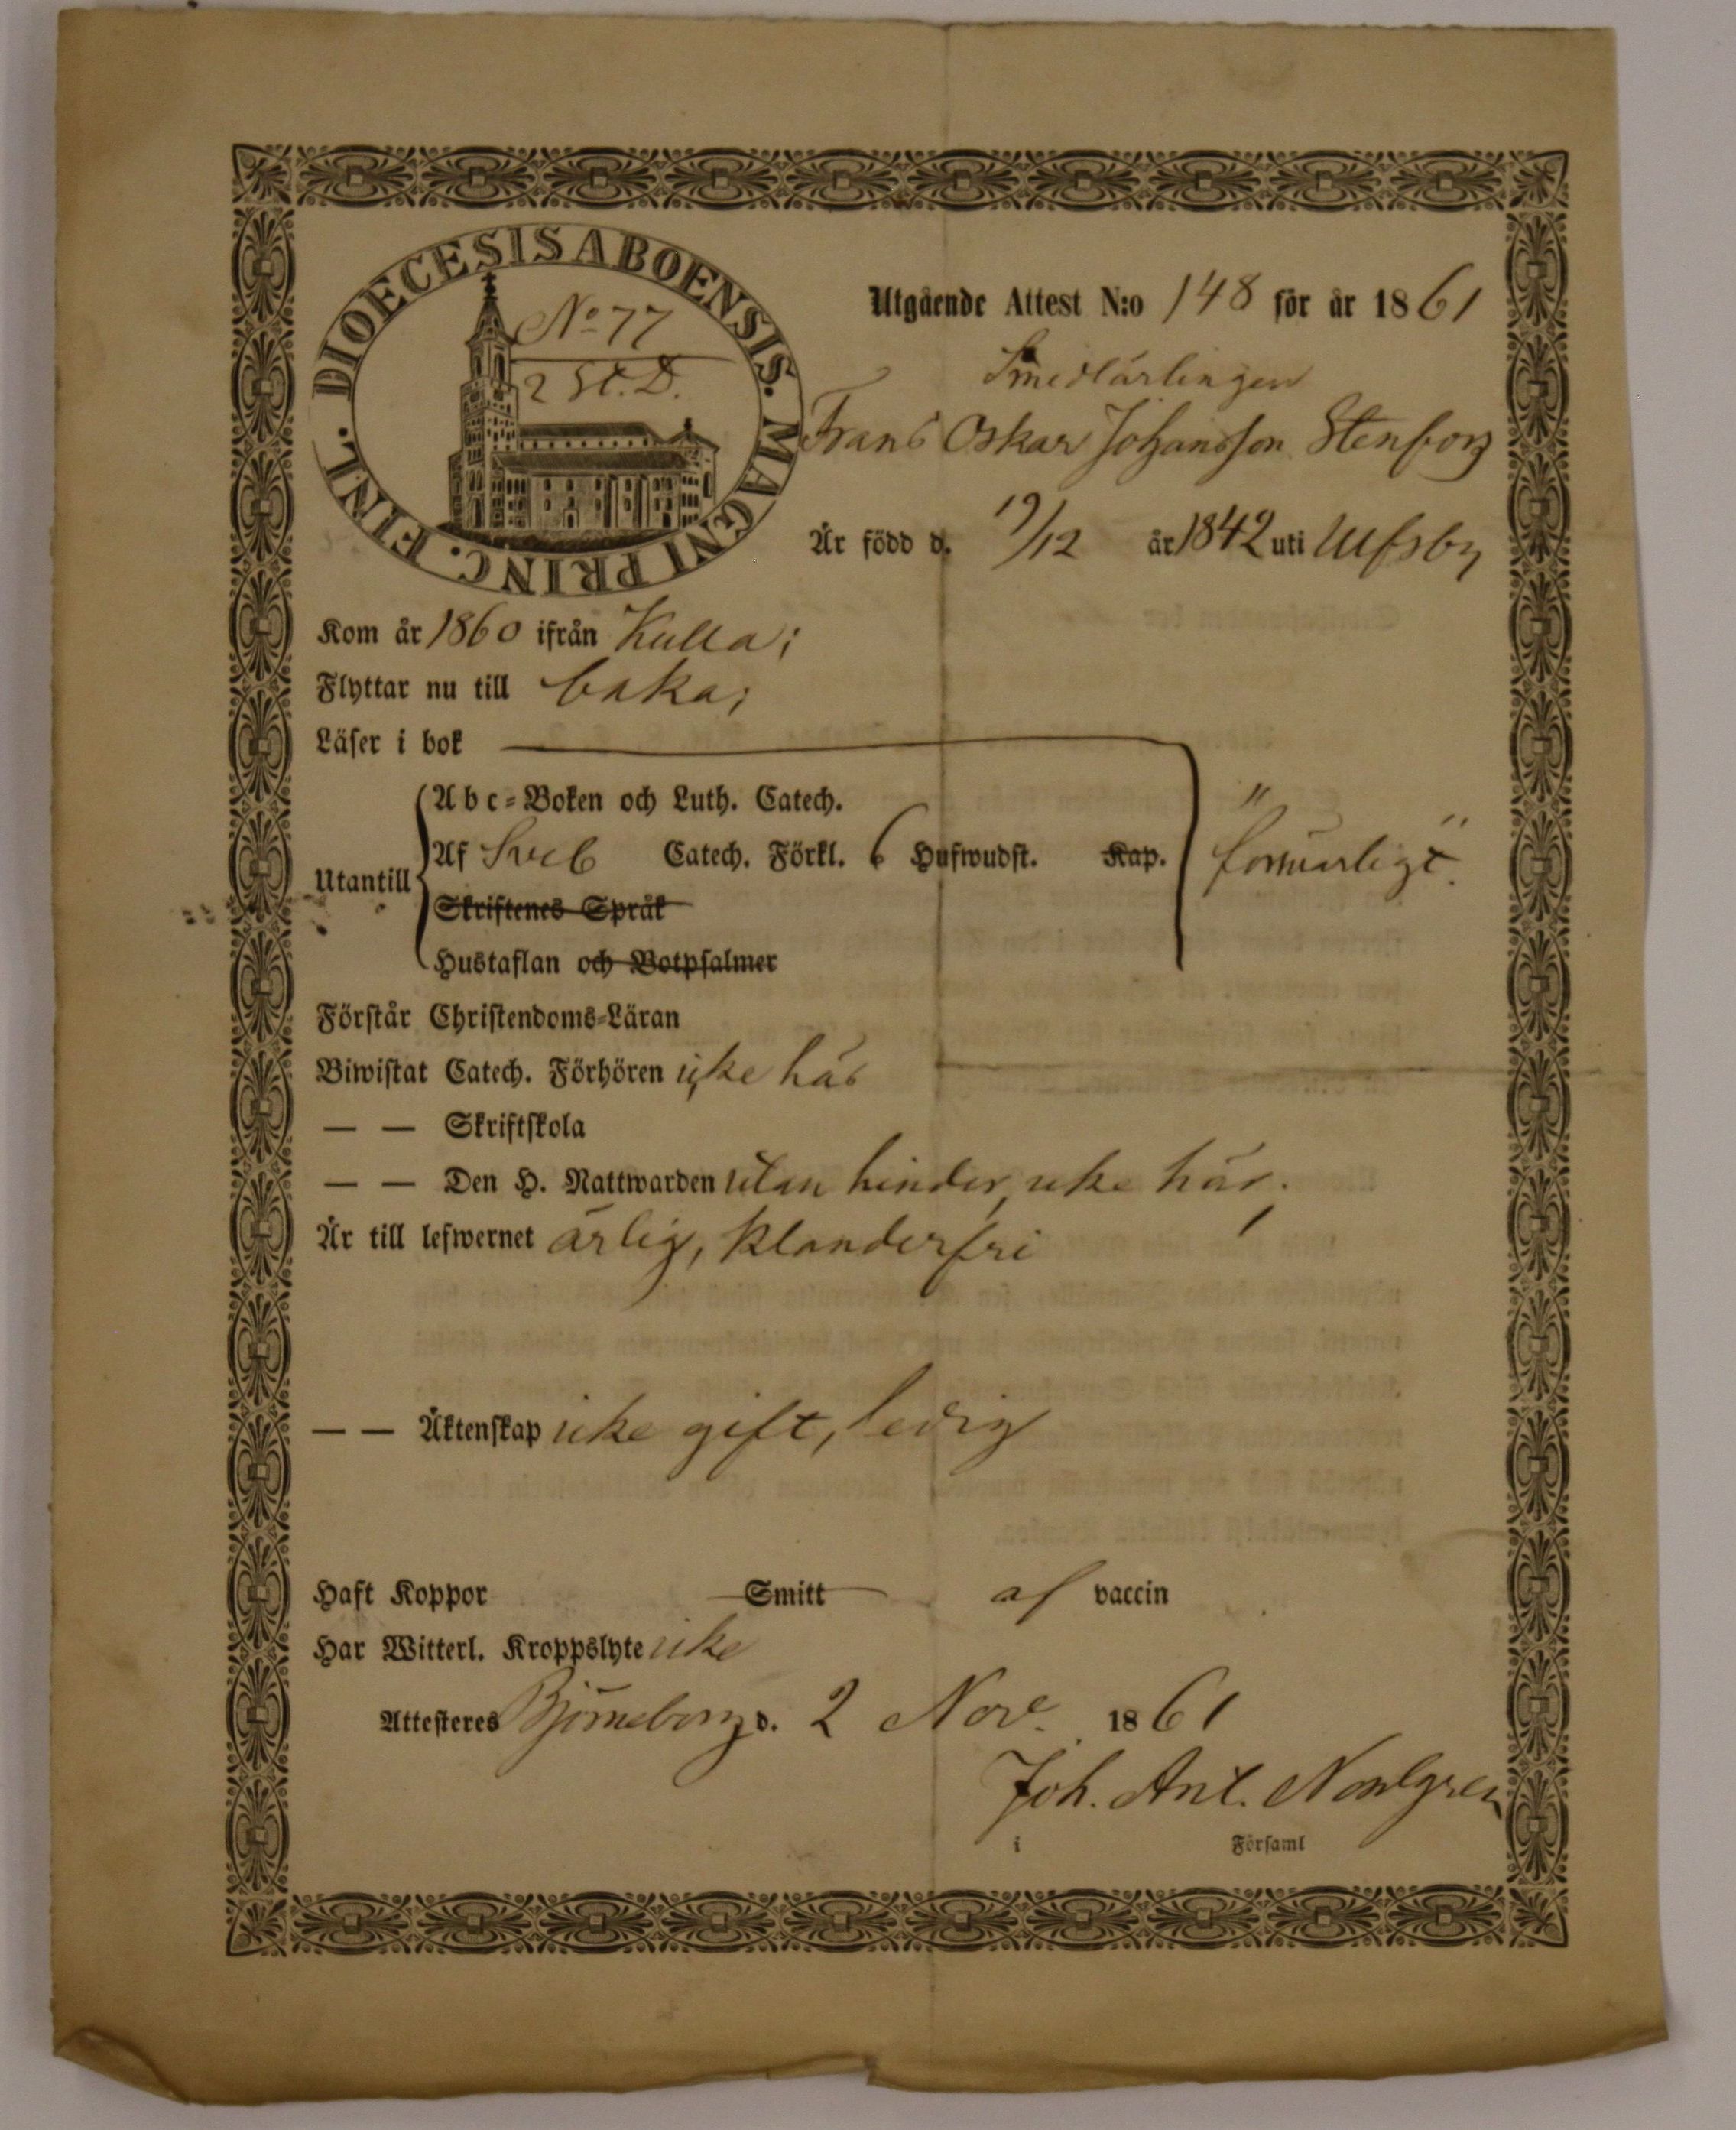 DIOECESIS ABOENSIS. MAGNI PRINC. FINL.
No 77
2 St. D.
Utgående Attest N:o 148 för år 1861
Smedlärlingen
Frans Oskar Johansson Stenfors
Är född d. 19/12 år 1842 uti Ulfsby
Kom år 1860 ifrån Kulla;
Flyttar nu till baka;
Läser i bok
Abc-Boken och Luth. Catech.
Utantill Af Sveb Catech. Förkl. 6 Hufwudst. Kap. försvarligt.
Skriftenes Språk
Hustaflan och Botpsalmer
Förstår Christendoms-Läran
Biwistat Catech. Förhören icke här
— — Skriftskola
— — Den H. Nattwarden utan hinder, icke här.
Är till lefwernet ärlig, klanderfri
— — Äktenskap icke gift, ledig
Haft Koppor Smitt af vaccin
Har Witterl. Kroppslyte icke
Attesteres Björneborg d. 2 Nov. 1861
Joh. Ant. Norlgren
i Församl